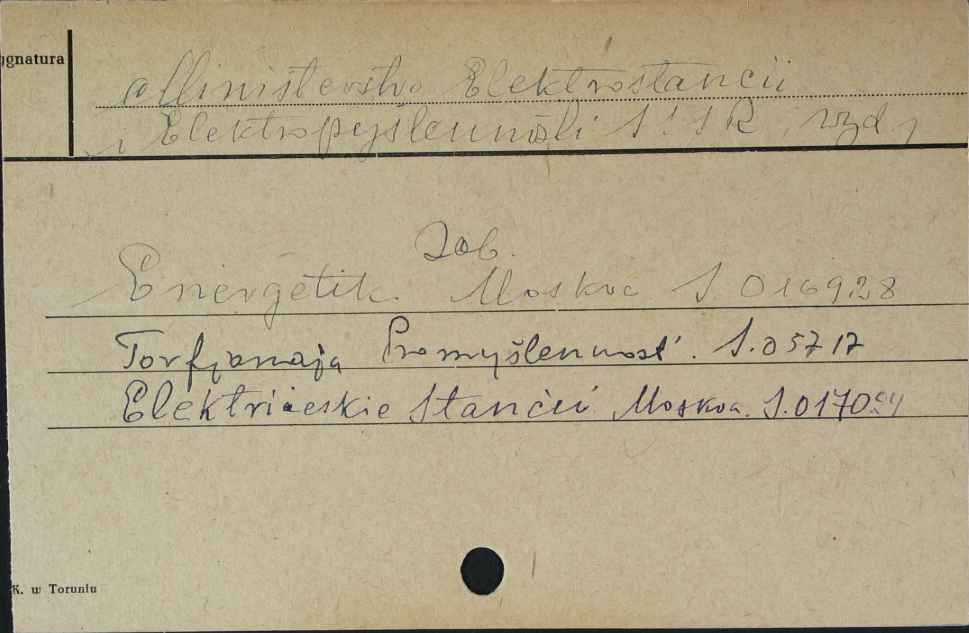 ygnatura
Ministerstvo Elektrostancii
i Elektropyšlennosti S.S.S.R. wyd.
Zob.
Energetik. Moskva S. 016928
Torfjanaja Promyšlennost'. S. 05717
Električeskie Stancii Moskva. S. 0170
K. w Toruniu